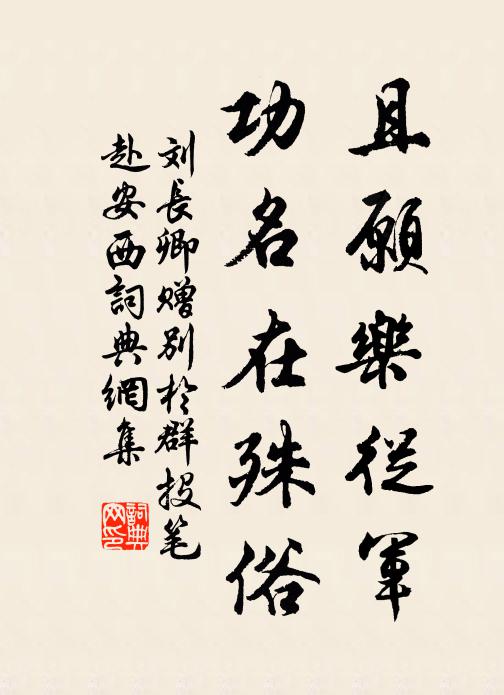 且願樂從軍
功名在殊俗
刘長卿赠别於群投笔
赴安西詞典網集
詞典网印